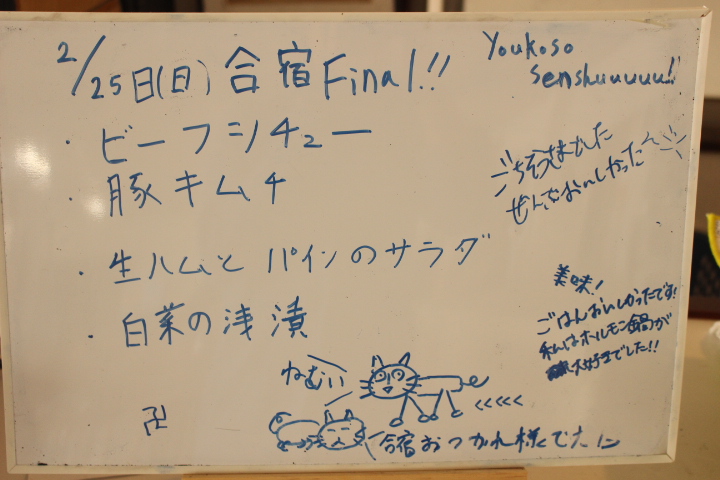 2/25日(日) 合宿Final!!
Youkoso
senshuuuuu!!
・ビーフシチュー
・豚キムチ
・生ハムとパインのサラダ
・白菜の浅漬
ごちそうさまでした
ぜんぶおいしかった〜
美味!
ごはんおいしかったです!
私はホルモン鍋が
大好きでした!!
ねむい
<<<<<
合宿おつかれ様でした
卍